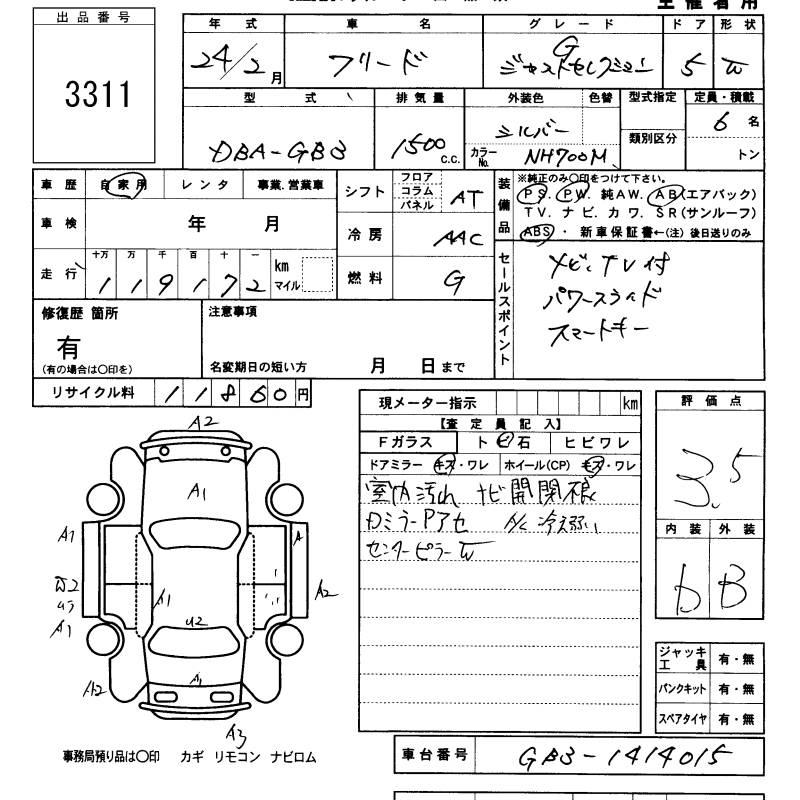 主催者用
出品番号
3311
年式 車名 グレード ドア 形状
24/2月 フリード G ジャストセレクション 5 W
型式 排気量 外装色 色替 型式指定 定員・積載
DBA-GB3 1500 c.c. シルバー カラーNo. NH700M 類別区分 6名
トン
車歴 自家用 レンタ 事業.営業車
車検 年 月
走行 十万 万 千 百 十 一
119172 km マイル
シフト フロア コラム パネル AT
冷房 AAC
燃料 G
装備品
※純正のみ〇印をつけて下さい。
PS. PW. 純AW. AB(エアバック)
TV. ナビ. カワ. SR(サンルーフ)
ABS・新車保証書←(注) 後日送りのみ
セールスポイント
ナビ. TV付
パワースライド
スマートキー
修復歴 箇所
有
(有の場合は〇印を)
注意事項
名変期日の短い方 月 日まで
リサイクル料 11860円
現メーター指示 km
【査定員記入】
Fガラス トビ石 ヒビワレ
ドアミラー キズ・ワレ ホイール(CP) キズ・ワレ
室内汚れ ナビ開閉根
Dミラー A/C 冷え弱い
センターピラーW
評価点
3.5
内装 外装
b B
ジャッキ工具 有・無
パンクキット 有・無
スペアタイヤ 有・無
A2
A1
A1
A
A2
W2
A1
A1
U2
A1
A2
A3
事務局預り品は〇印 カギ リモコン ナビロム
車台番号 GB3-1414015